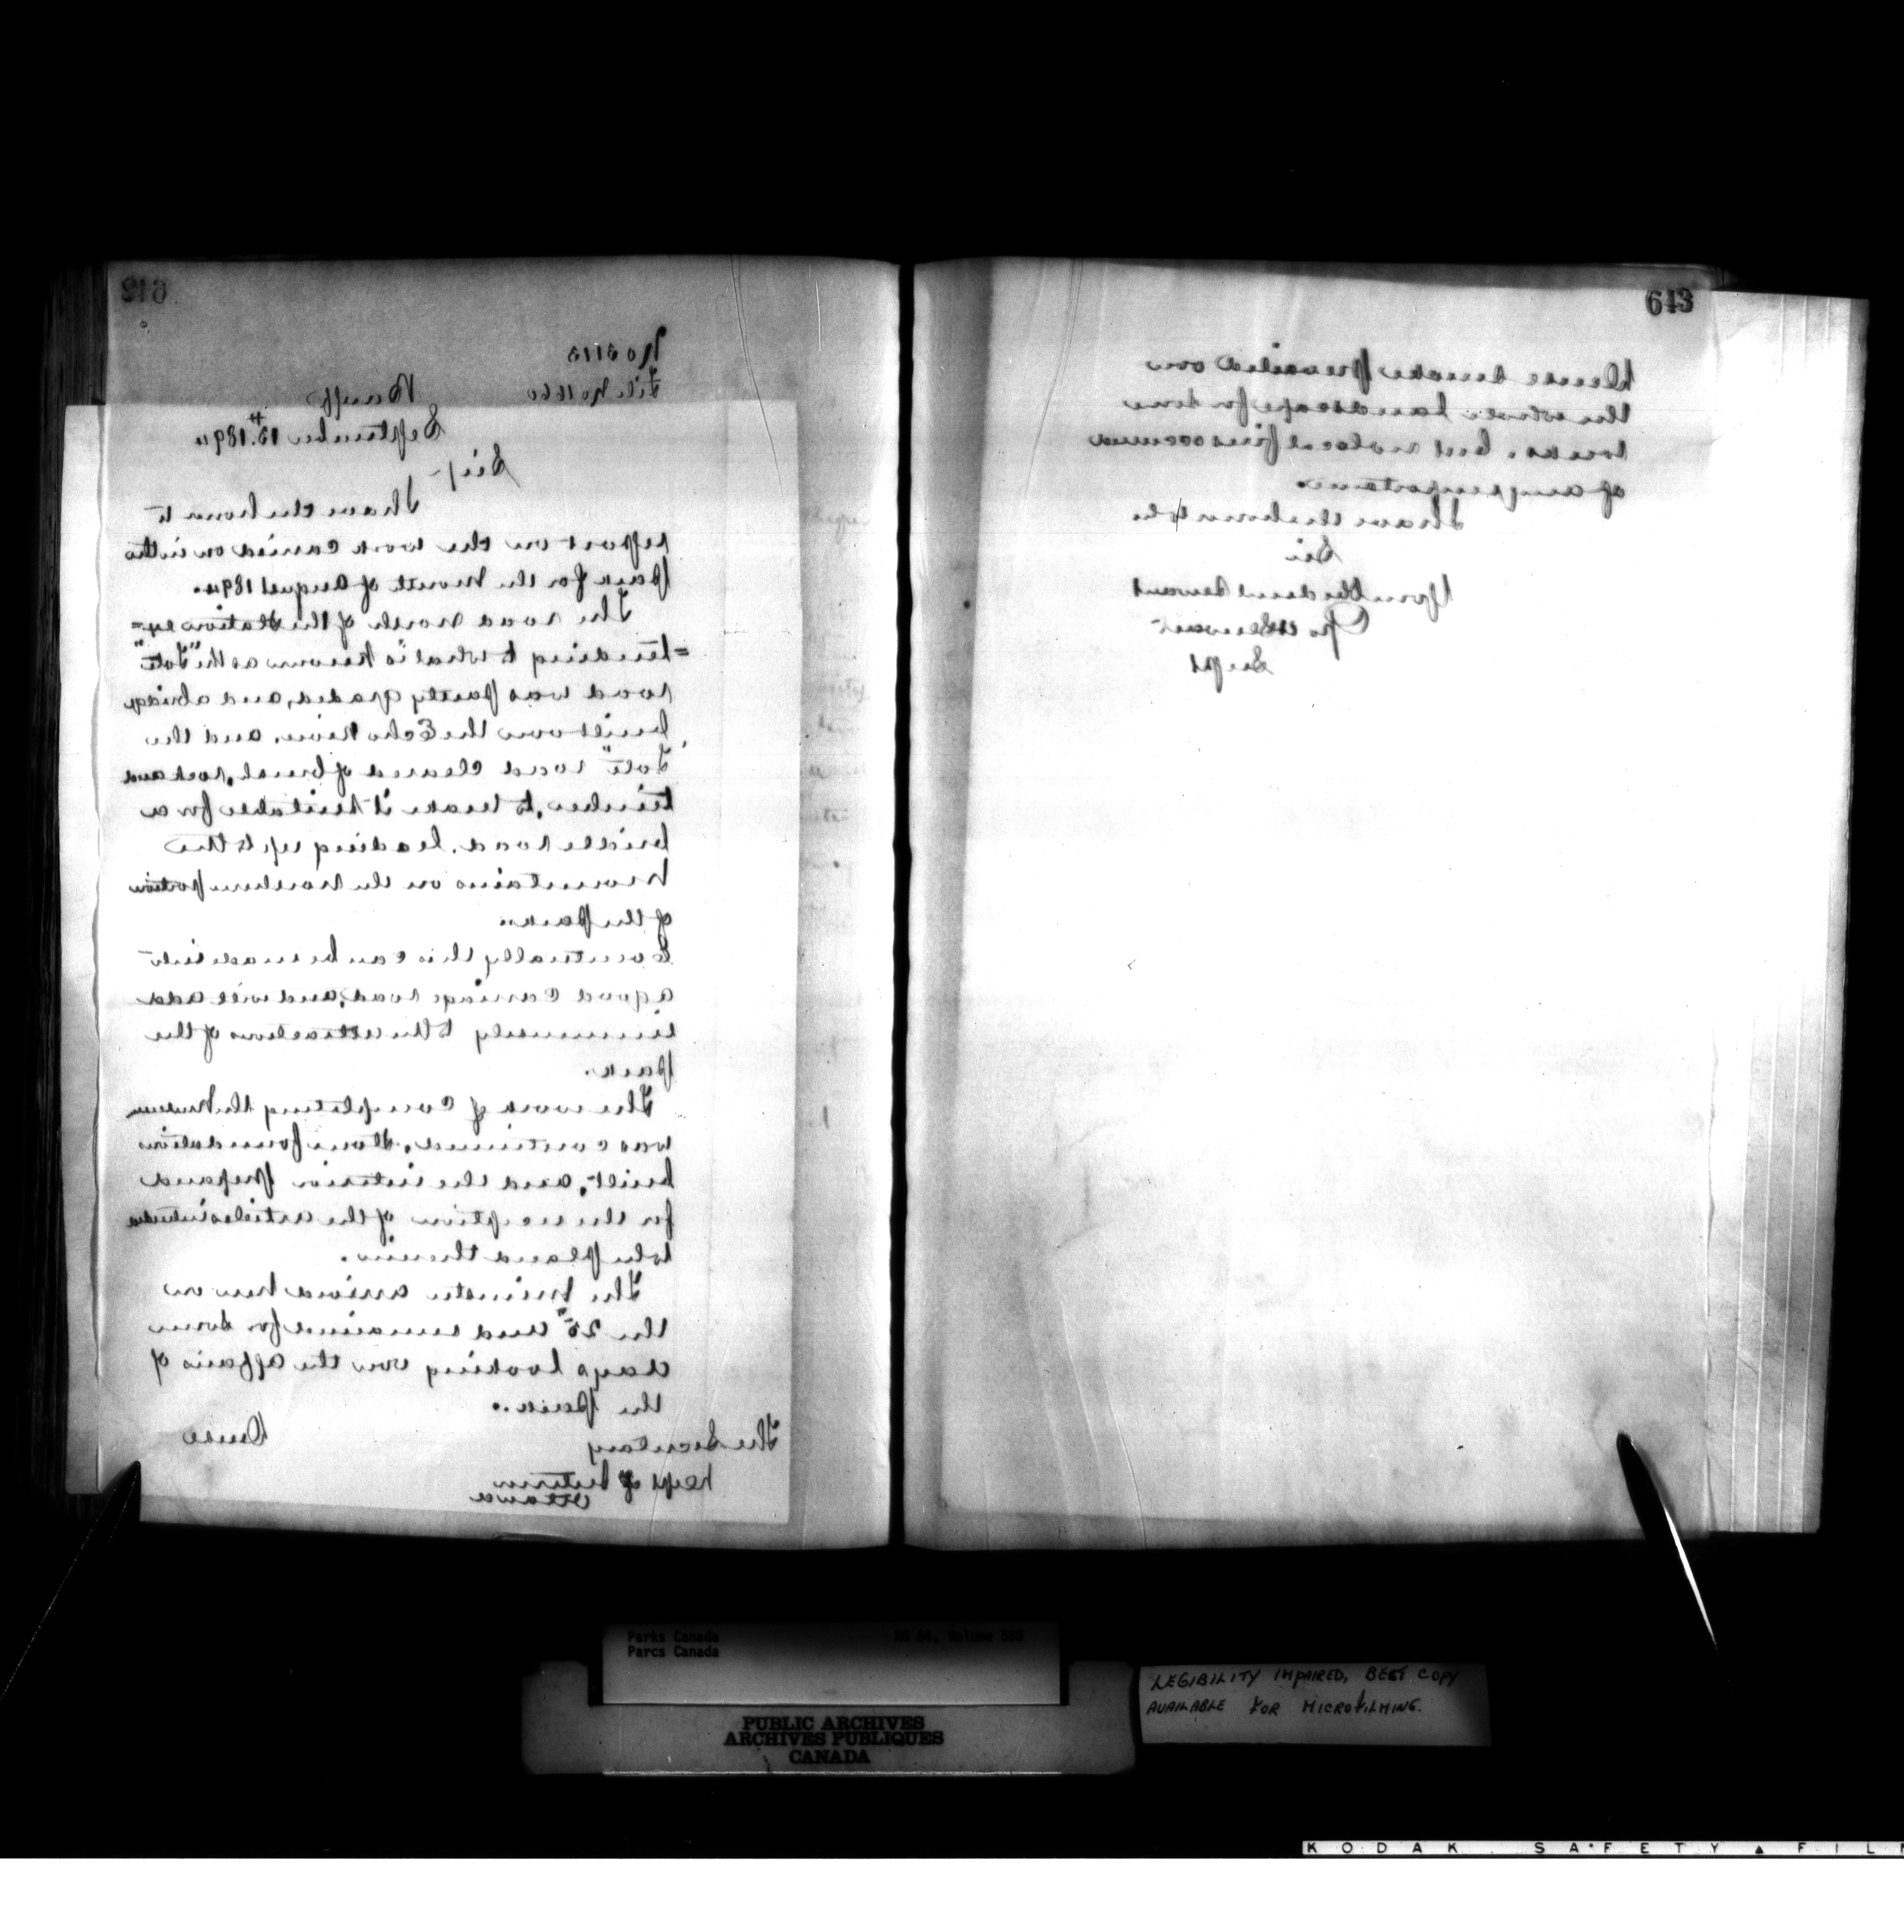 No 3113
File No 1660
Banff
September 13th. 1894
Sir,
I have the honor to
report on the work carried on in the
park for the Month of August 1894.
The road North of the Station ex=
=tending to what is known as the "Tote"
road was partly graded, and a bridge
built over the Echo River, and the
"Tote" road cleared of brush, rock and
timber, to make it suitable for a
bridle road, leading up to the
Mountains on the Northern portion
of the park.
Eventually this can be made into
a good carriage road, and will add
immensely to the attractions of the
park.
The work of completing the Museum
was continued, stone foundation
built, and the interior prepared
for the reception of the articles intended
to be placed therein.
The Minister arrived here on
the 25th and remained for some
days looking over the affairs of
the park.
The Secretary
Dense
Dept of Interior
Ottawa
643
Dense smoke prevailed over
the whole landscape for some
weeks, but no local fires occurred
of any importance.
I have the honor to be
Sir
Your Obedient Servant
Geo A Stewart
Supt
Parks Canada
Parcs Canada
RG 84, Volume 565
PUBLIC ARCHIVES
ARCHIVES PUBLIQUES
CANADA
LEGIBILITY IMPAIRED, BEST COPY
AVAILABLE FOR MICROFILMING.
KODAK SAFETY ▲ FIL